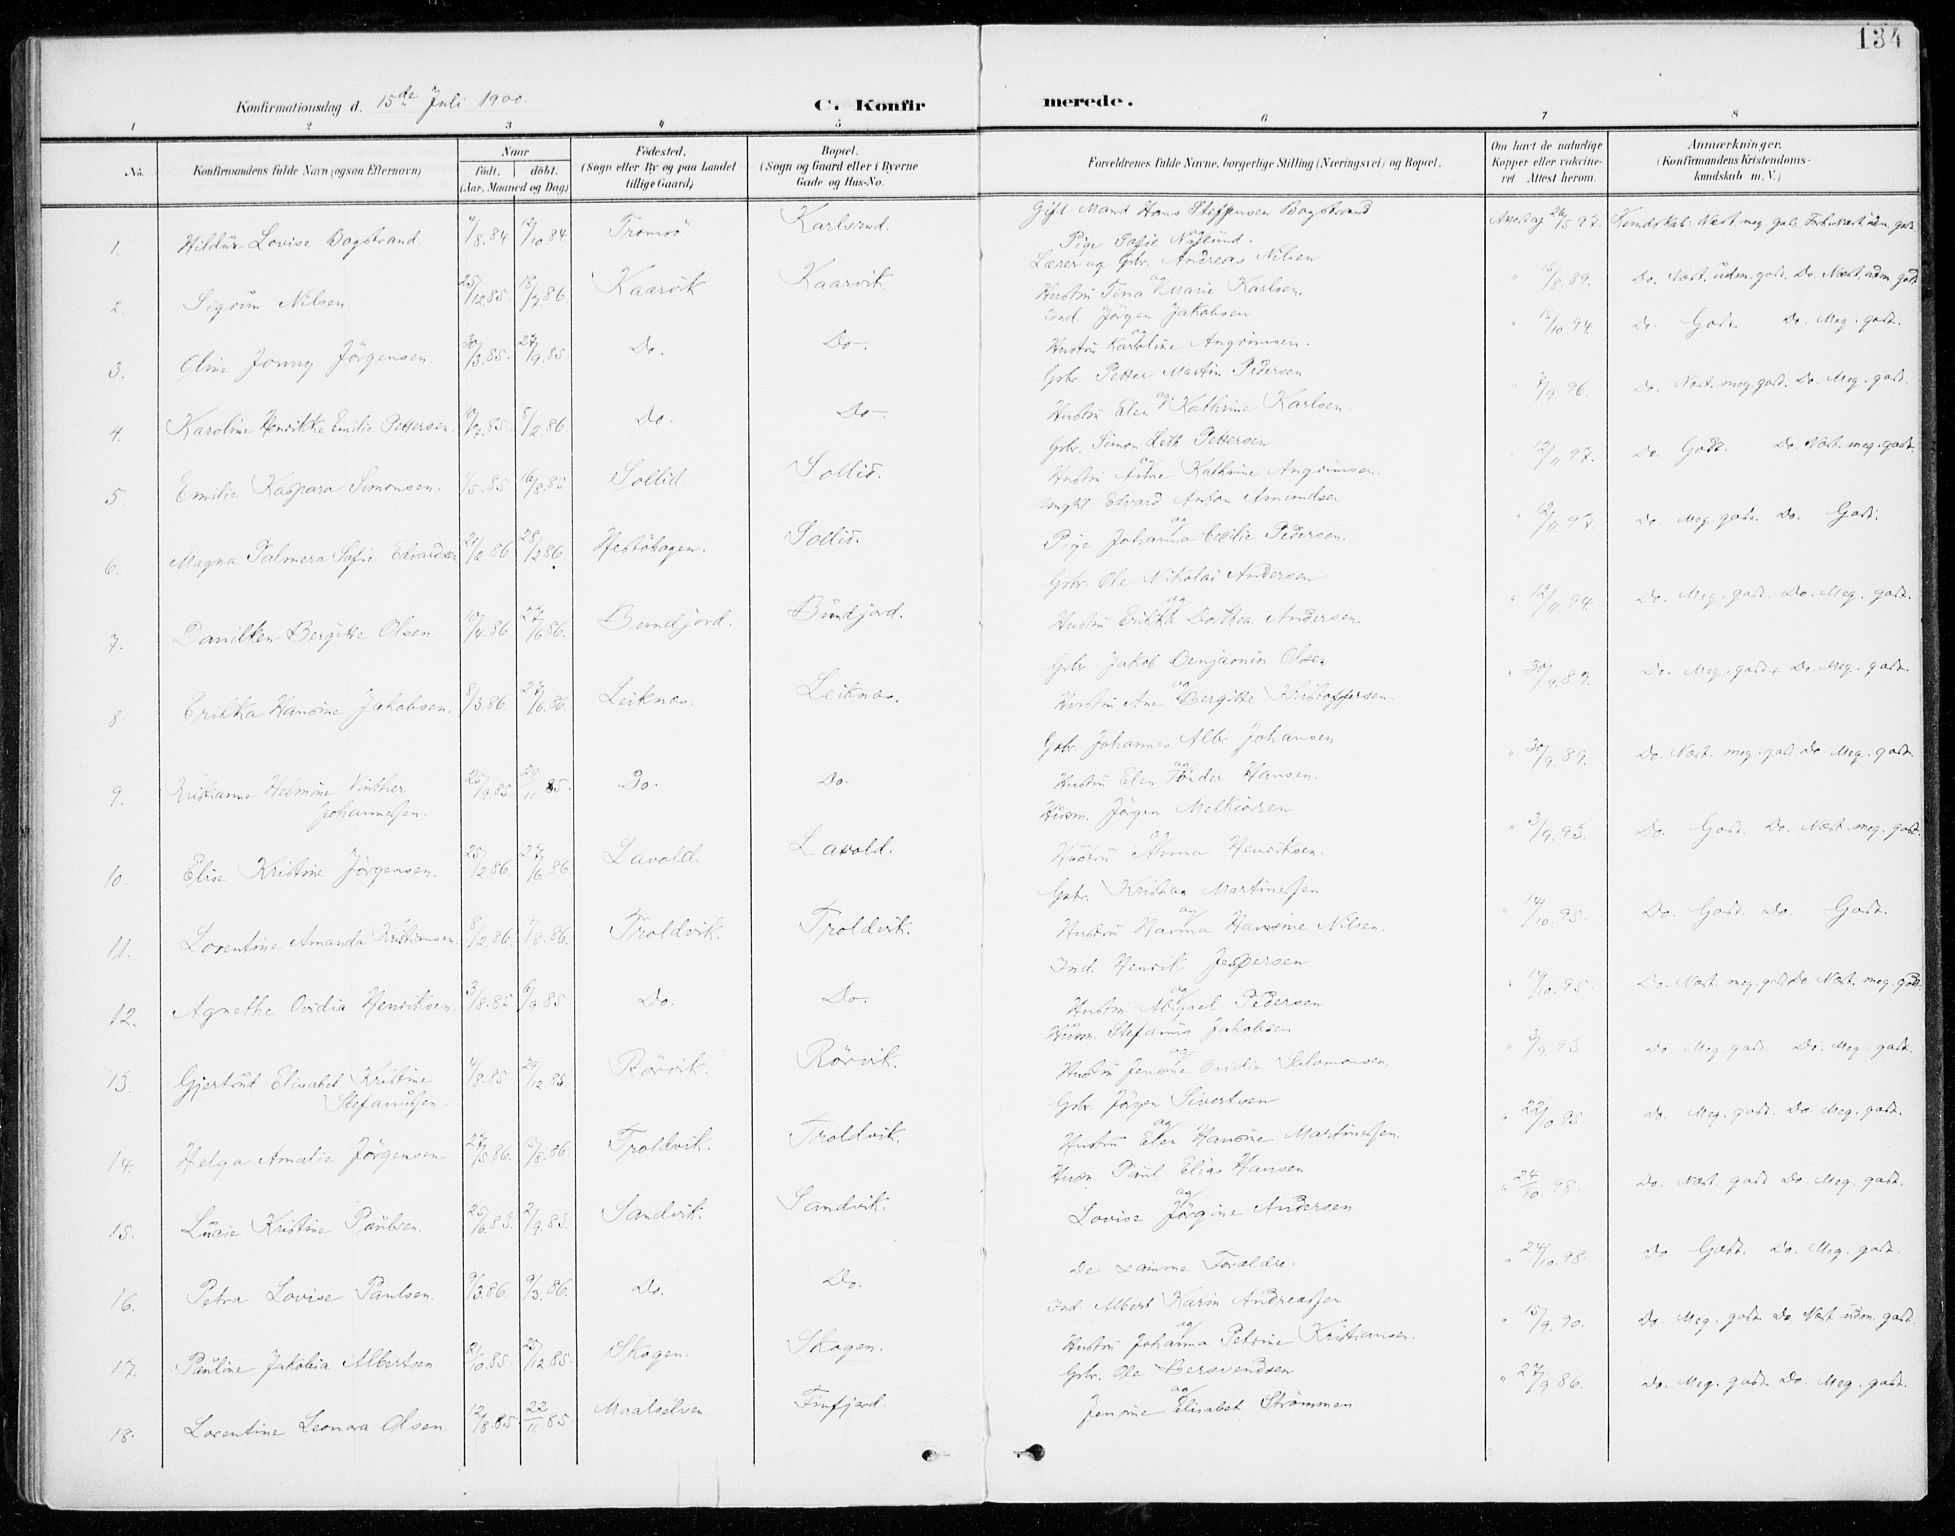 134
Konfirmationsdag d. 15de Juli 1900.
C. Konfirmerede.
1 2 3 4 5 6 7 8
No.
Konfirmandens fulde Navn (ogsaa Efternavn)
Naar
født. døbt.
(Aar, Maaned og Dag)
Fødested.
(Sogn eller By og paa Landet
tillige Gaard)
Bopæl.
(Sogn og Gaard eller i Byerne
Gade og Hus-No.
Forældrenes fulde Navne, borgerlige Stilling (Næringsvei) og Bopæl.
Om havt de naturlige
Kopper eller vakcine-
ret. Attest herom.
Anmærkninger.
(Konfirmandens Kristendoms-
kundskab m. V.)
Gift Mand Hans Steffensen Bagstrand
1. Hildur Lovise Bagstrand. 4/8.84 12/10.84 Tromsö Karlsrud. Pige Sofie Nyglund. 26/5 97. Kundskab: Næst. meg. godt.
Lærer og Gbr. Andreas Nilsen
2. Sigrun Nilsen. 25/12.85. 18/7.86 Kaarvik Kaarvik. og Hustru Tina Marie Karlsen. " 15/8.89. Do. Næst. udm. godt. Do. Næst. udm. godt
Ind. Jörgen Jakobsen
3. Oline Jonny Jörgensen. 20/3.85. 27/9.85. Do. Do. og Hustru Karoline Angrimsen. " 15/10.94. Do. Godt. Do. Meg. godt.
Gbr. Petter Martin Pedersen
4. Karoline Henrikke Emilie Pettersen. 5/2.86. Do. Do. og Hustru Elen Kathrine Karlsen. " 7/9.96. Do. Næst. meg. godt. Do. Meg. godt.
Gbr. Simon Pettersen
5. Emilie Kaspara Simonsen. 1/5.85 16/8.85 Sollid. Sollid. og Hustru Anne Kathrine Angrimsen. 12/11 97. Do. Godt. Do. Næst. meg. godt.
Ungkl Edvard Anton Amundsen
6. Magna Palmera Sofie Edvardsen 21/2.86 28/2 86. Sollid. og Pige Johanna Cecilie Pedersen. " 12/11 97. Do. Meg. godt. Do. Godt.
Gbr. Ole Nikolai Andersen
7. Danilken Bergitte Olsen. 10/4.86 27/6 86. Bundjord. Bundjord. og Hustru Erikka Dorthea Andersen. " 12/11 94. Do. Meg. godt. Do. Meg. godt.
Gbr. Jakob Benjamin Olsen
8. Erikka Hansine Jakobsen. 9/3.86. 27/6.86. Leiknes. Leiknes. og Hustru Ane Bergitte Kristoffersen. " 30/9.89. Do. Meg. godt. Do. Meg. godt.
Gbr. Johannes Albr. Johansen
9. Kristianne Helmine Vinther 25/9.85. 29/11 85. Do. Do. og Hustru Elen Hansen. " 30/9.89. Do. Næst. meg. godt Do. Meg. godt.
Johannessen.
Husm. Jörgen Melkiorsen
10. Elise Kristine Jörgensen. 25/2 86. 27/6 86. Lavold. Lavold. og Hustru Anna Henriksen. " 3/9.93. Do. Godt. Do. Næst. meg. godt.
Gbr. Kristian Martinessen
11. Lorentine Amanda Kristiansen. 8/2 86. 1/8.86. Troldvik. Troldvik. og Hustru Hanna Hansine Nilsen. 14/10.95. Do. Godt. Do. Godt.
Ind. Henrik Jespersen
12. Agnethe Ovidia Henriksen. 3/8.85. 6/9.85 Do. Do. og Hustru Abigael Pedersen " 14/10.95. Do. Næst. meg. godt Do. Næst. meg. godt.
Husm. Stefanus Jakobsen
13. Gjertrud Elisabet Kristine 4/8.85 29/12.85 Rörvik. Rörvik. og Hustru Jensine Ovidia Salomonsen. " 3/9.93 Do Meg. godt. Do. Meg. godt.
Stefanussen.
Gbr. Jörgen Sivertsen
14. Helga Amalie Jörgensen. 27/5 86. 15/8.86. Troldvik. Troldvik. og Hustru Elen Hansine Martinessen. " 22/10.95. Do. Meg. godt. Do. Meg. godt.
Husm. Paul Elias Hansen
15. Lucie Kristine Paulsen. 25/6 85. 2/9.85. Sandvik. Sandvik. og Lovise Jörgine Andersen. " 24/10 98. Do. Næst. godt Do. Meg. godt.
16. Petra Lovise Paulsen. 9/3.86. 9/3.86. Do. Do. De samme Foraeldre. " 24/10.98. Do Godt. Do. Meg. godt.
Ind. Albert Karin Andreassen
17. Pauline Jakobia Albertsen. 21/10.85. 25/12.85. Skogen. Skogen. og Hustru Johanna Petrine Kristiansen. " 15/9.90. Do. Meg. godt. Do. Næst udm. godt.
Gbr. Ole Bersvendsen
18. Lorentine Leonora Olsen. 12/8.85 22/11 85 Maalselven. Finfjord. og Jensine Elisabet Strömmen. " 27/9.86. Do. Meg. godt. Do. Meg. godt.